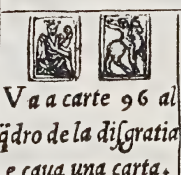 Va a carte 96 al
q̃dro de la diſgratia
e caua una carta.